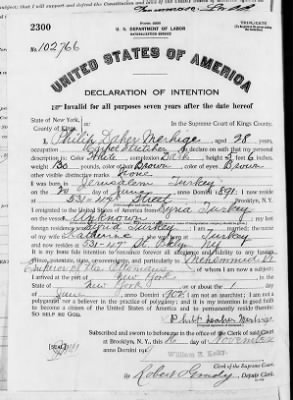 TRIPLICATE
Form 2203
2300
U. S. DEPARTMENT OF LABOR
NATURALIZATION SERVICE
No 102766
UNITED STATES OF AMERICA
DECLARATION OF INTENTION
Invalid for all purposes seven years after the date hereof
State of New York,
County of Kings
In the Supreme Court of Kings County.
I, Philip Daher Merhige, aged 28 years,
occupation, do declare on oath that my personal
description is: Color White, complexion Dark, height 5 feet 6 inches,
weight 130 pounds, color of hair Brown, color of eyes Brown,
other visible distinctive marks None
I was born in Jerusalem Turkey
on the day of June, anno Domini 1891; I now reside
at 531-47 Street, Brooklyn, N.Y.
I emigrated to the United States of America from Syria Turkey
on the vessel Unknown; my last
foreign residence was Syria Turkey; I am married; the name
of my wife is Catherine; she was born in Turkey
and now resides at 531-47 St Bklyn NY
It is my bona fide intention to renounce forever all allegiance and fidelity to any foreign
prince, potentate, state, or sovereignty, and particularly to Mehommed VI
Emperor of the Ottomans, of whom I am now a subject;
I arrived at the port of New York, in the
State of New York, on or about the 1 day
of June, anno Domini 1902; I am not an anarchist; I am not a
polygamist nor a believer in the practice of polygamy; and it is my intention in good faith
to become a citizen of the United States of America and to permanently reside therein:
SO HELP ME GOD.
Philip Daher Merhige
Subscribed and sworn to before me in the office of the Clerk of said Court
at Brooklyn, N.Y., this day of November
anno Domini 19
[SEAL]
William E. Kelly
Clerk of the Supreme Court.
By, Deputy Clerk.